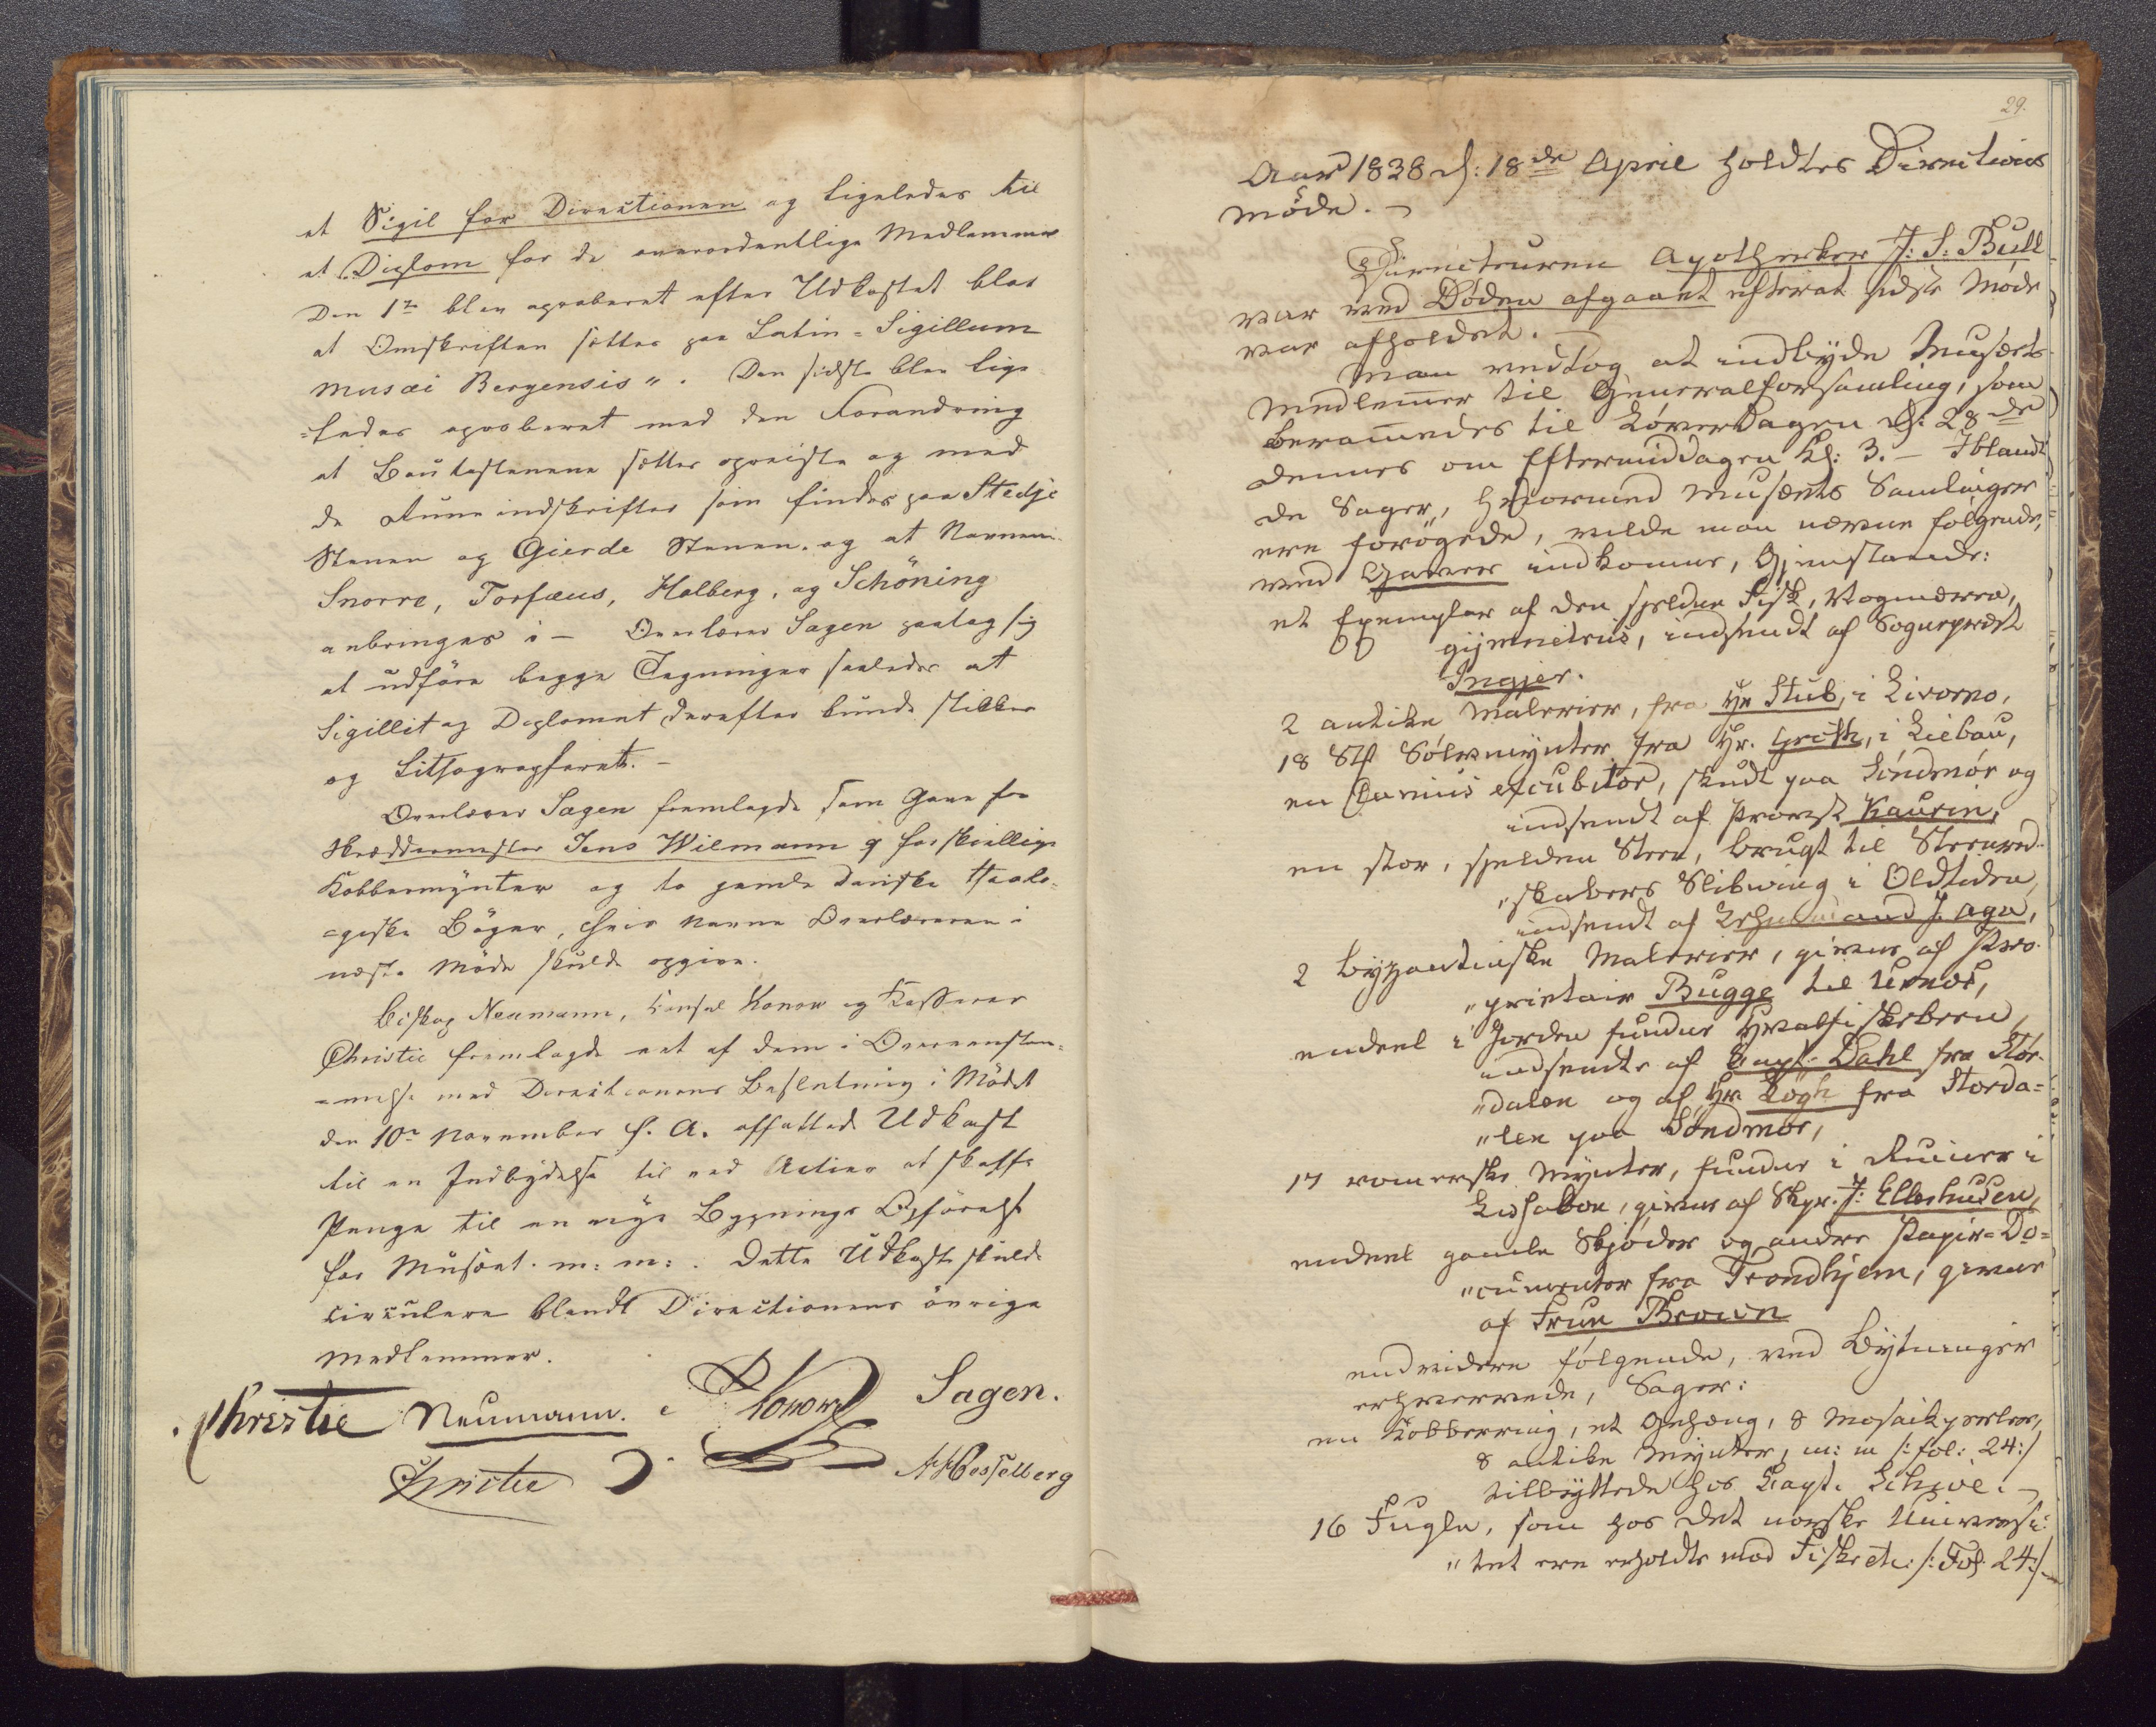 et Sigil for Directionen og ligeledes til
et Diplom for de overordentlige Medlemmer
Den 1ste blev approberet efter Udkastet blot
at Omskriften sættes paa Latin = Sigillum
musæi Bergensis". Den sidste blev lige
=ledes approberet med den Forandring
at Bautastenene sættes opreiste og med
de Runeindskrifter som findes paa Stedje
Stenen og Gierde Stenen. og at Navnene
Snorre, Torfæus, Holberg, og Schöning
anbringes i - Overlærer Sagen paatog sig
at udföre begge Tegninger saaledes at
Sigillet og Diplomet derefter kunde stikkes
og Lithographeret. -
Overlærer Sagen fremlagde som Gave fra
Skreddermester Jens Wilmann 9 forskiellige
Kobbermynter og to gamle danske theolo=
=giske Böger, hvis Navne Overlæreren i
næste Möde skulde opgive.
Biskop Neumann, Consul Konow og Kasserer
Christie fremlagde eet af dem i Overeenstem=
=melse med Directionens Beslutning i Mödet
den 10de November f. A. affattede Udkast
til en Indbydelse til ved Actier at skaffe
Penge til en nye Bygnings Opförelse
for Museet. m: m: . Dette Udkast skulde
circulere blandt Directionens övrige
Medlemmer.
Christie Neumann. Konow Sagen.
Christie Hesselberg
29.
Aar 1838 d: 18de April holdtes Directions
möde. -
Directeuren Apotheker J: S: Bull
var ved Döden afgaaet efterat sidste Möde
var afholdet.
Man vedtog at indbyde Musæets
Medlem̅er til Generalforsamling, som
beram̅edes til Löverdagen d: 28de
dennes om Eftermiddagen Kl: 3. - Iblandt
de Sager, hvormed Musæets Samlinger
ere forögede, vilde man nævne følgende,
ved Gaver indkomne, Gjenstande:
et Exemplar af den sjeldne Fisk, Vogmæren,
gymnetrus, indsendt af Sogneprest
Ingjer.
2 antike Malerier, fra Hr Stub, i Livorno,
18 St Sølvmynter fra Hr. Groth, i Liebau,
en Lanius excubitor, skudt paa Söndmör og
indsendt af Provst Kaurin,
en stor, sjelden Steen, brugt til Steenred-
"skabers Slibning i Oldtiden,
indsendt af Lehnsmand J. Aga,
2 byzantinske Malerier, givne af Pro-
"prietair Bugge til Urnes,
endeel i Jorden fundne Hvalfiskebeen,
indsendte af Capt. Dahl fra Stör-
"dalen og af Hr Kögh fra Storda=
"len paa Söndmör,
17 romerske Mynter, fundne i Ruiner i
Lissabon, givne af Skpr. J: Ellerhusen,
endeel gamle Skjøder og andre Papir=Do=
"cumenter fra Trondhjem, givne
af Frue Broun
endvidere følgende, ved Bytninger
erhvervede, Sager:
en Kobberring, et Gehæng, 8 Mosaikperler,
8 antike Mynter, m: m /: fol: 24:/
tilbyttede hos Capt. Schive. -
16 Fugle, som hos det norske Universi-
"tet ere erholdte mod Fiske etc: /: Fol. 24:/ -